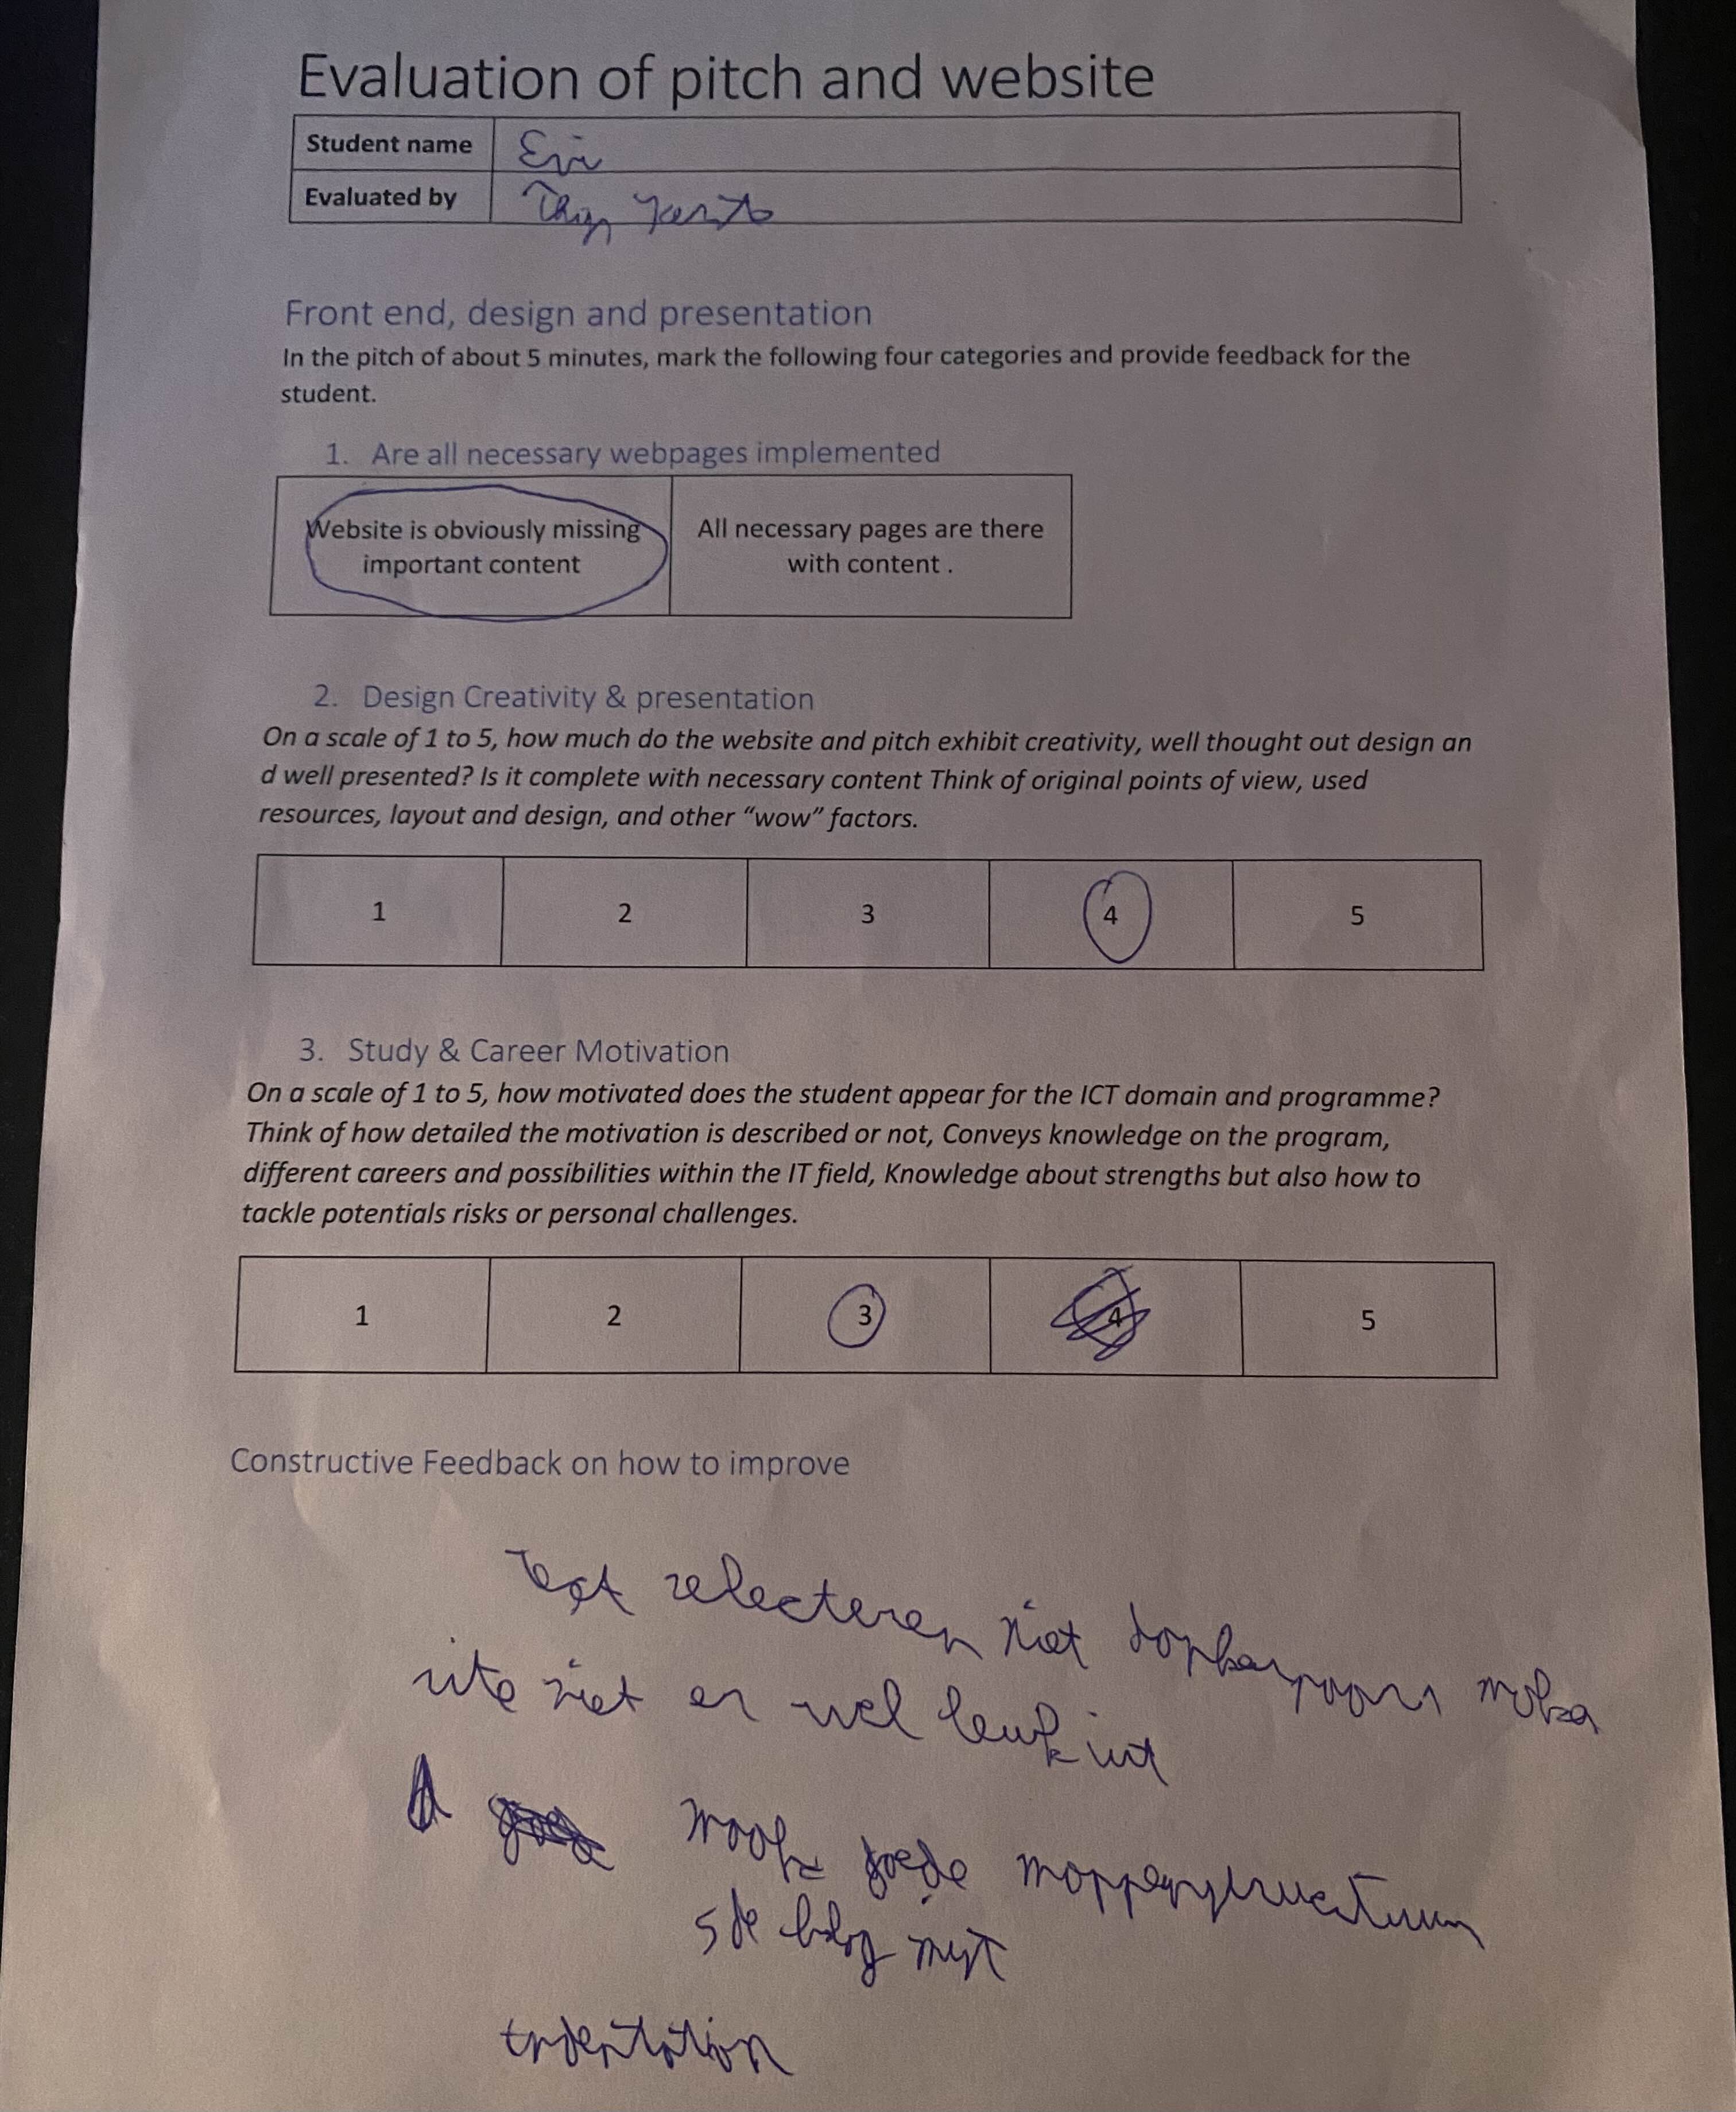 Evaluation of pitch and website
Student name
Evaluated by
Front end, design and presentation
In the pitch of about 5 minutes, mark the following four categories and provide feedback for the
student.
1. Are all necessary webpages implemented
Website is obviously missing
important content
All necessary pages are there
with content .
2. Design Creativity & presentation
On a scale of 1 to 5, how much do the website and pitch exhibit creativity, well thought out design an
d well presented? Is it complete with necessary content Think of original points of view, used
resources, layout and design, and other “wow” factors.
1 2 3 4 5
3. Study & Career Motivation
On a scale of 1 to 5, how motivated does the student appear for the ICT domain and programme?
Think of how detailed the motivation is described or not, Conveys knowledge on the program,
different careers and possibilities within the IT field, Knowledge about strengths but also how to
tackle potentials risks or personal challenges.
1 2 3 4 5
Constructive Feedback on how to improve
selecteren niet
site ziet er wel leuk uit
maak goede mappenstructuur
5de blog mist